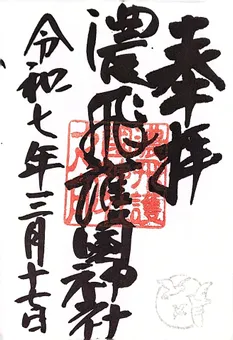 奉拝
濃飛護國神社
令和七年三月十七日